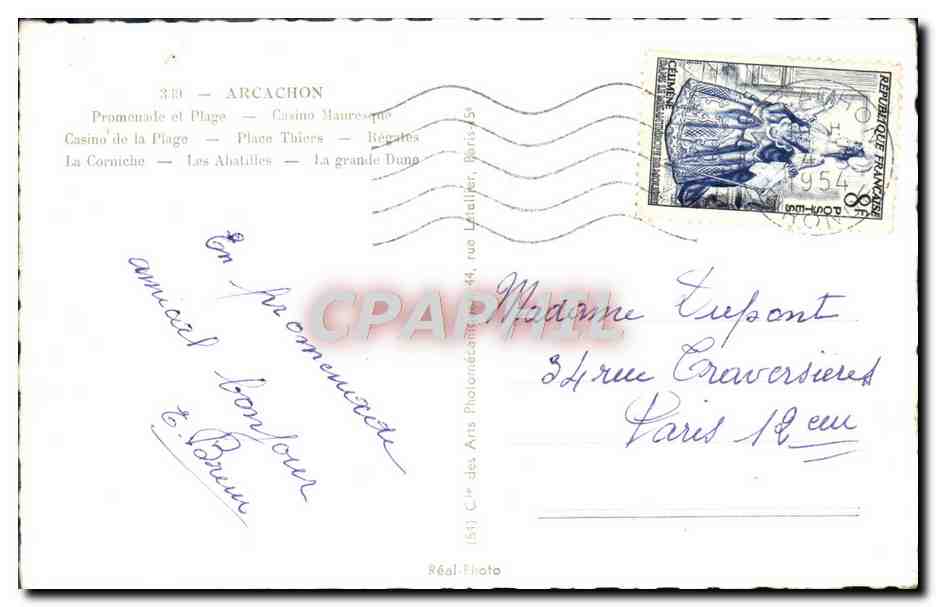 349 — ARCACHON
Promenade et Plage — Casino Mauresque
Casino de la Plage — Place Thiers — Régates
La Corniche — Les Abatilles — La grande Dune
REPUBLIQUE FRANÇAISE
8F
POSTES
CÉLIMÈNE
1954
En promenade
amical bonjour
(51) Cie des Arts Photomécaniques, 44, rue Letellier, Paris-15e
Madame Dupont
34 rue Traversières
Paris 12em
Réal-Photo
CPAPHIL